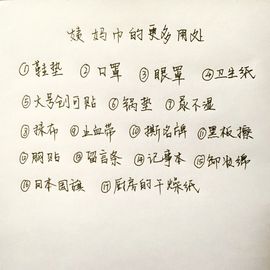 姨妈巾的更多用处
①鞋垫 ②口罩 ③眼罩 ④卫生纸
⑤大号创可贴 ⑥锅垫 ⑦尿不湿
⑧抹布 ⑨止血带 ⑩撕名牌 ⑪黑板擦
⑫胸贴 ⑬留言条 ⑭记事本 ⑮卸妆绵
⑯日本国旗 ⑰厨房的干燥纸